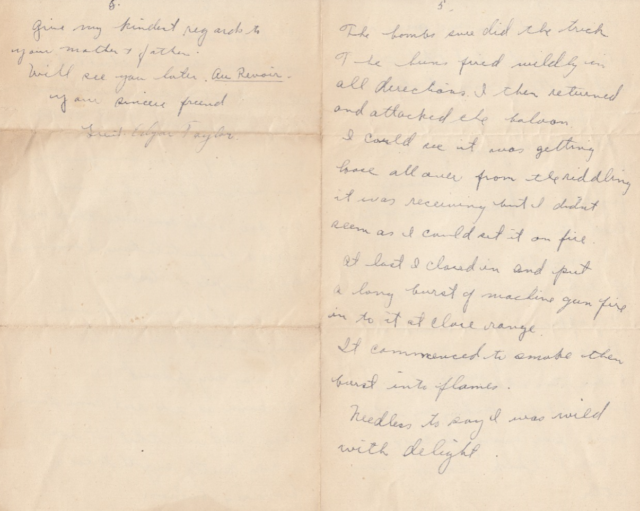 6.
Give my kindest regards to
your mother & father.
Will see you later. Au Revoir.
your sincere friend
Edgar Taylor
5.
The bombs sure did the trick
The huns fired wildly in
all directions. I then returned
and attacked the baloon
I could see it was getting
loose all over from the riddling
it was receiving but I didnt
seem as I could set it on fire.
At last I closed in and put
a long burst of machine gun fire
in to it at close range.
It commenced to smoke then
burst into flames.
Needless to say I was wild
with delight.